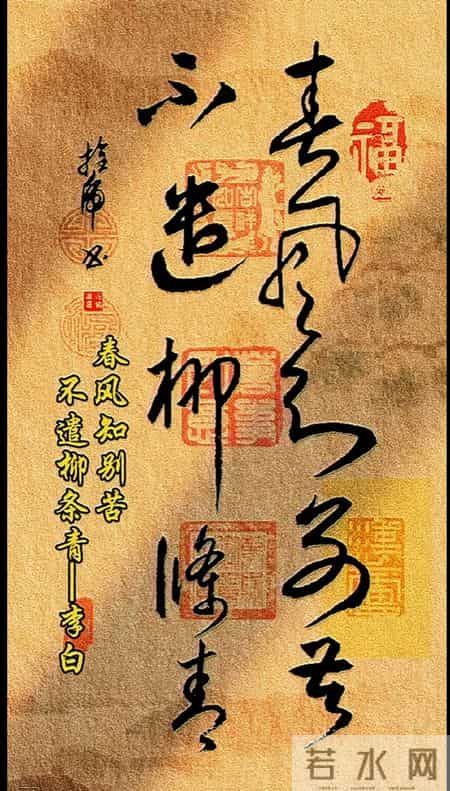 春风知别苦
不遣柳條青
春风知别苦
不遣柳条青—李白
福
若水网